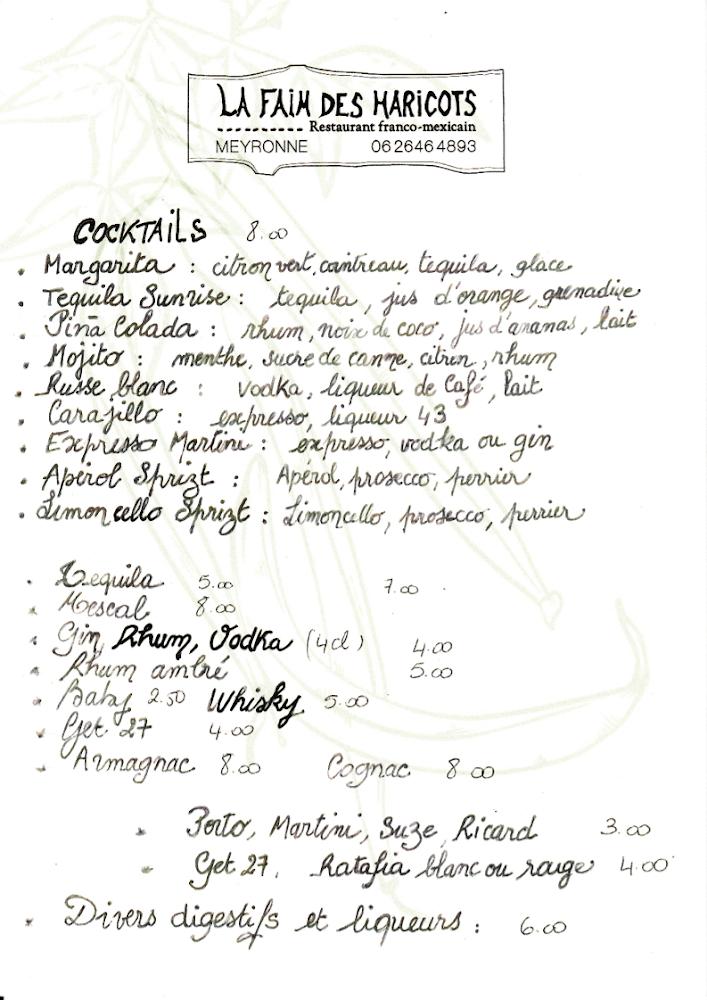 LA FAIM DES HARICOTS
Restaurant franco-mexicain
MEYRONNE 06 26 46 48 93
COCKTAILS 8.00
. Margarita : citron vert, cointreau, tequila, glace
. Tequila Sunrise : tequila, jus d'orange, grenadine
. Pina Colada : rhum, noix de coco, jus d'ananas, lait
. Mojito : menthe, sucre de canne, citron, rhum
. Russe blanc : vodka, liqueur de Café, lait
. Carajillo : expresso, liqueur 43
. Expresso Martini : expresso, vodka ou gin
. Apérol Sprizt : Apérol, prosecco, perrier
. Limoncello Sprizt : Limoncello, prosecco, perrier
. Tequila 5.00 7.00
. Mescal 8.00
. Gin, Rhum, Vodka (4cl) 4.00
. Rhum ambré 5.00
. Baby 2.50 Whisky 5.00
. Get 27 4.00
. Armagnac 8.00 Cognac 8.00
. Porto, Martini, Suze, Ricard 3.00
. Get 27, Ratafia blanc ou rouge 4.00
. Divers digestifs et liqueurs : 6.00